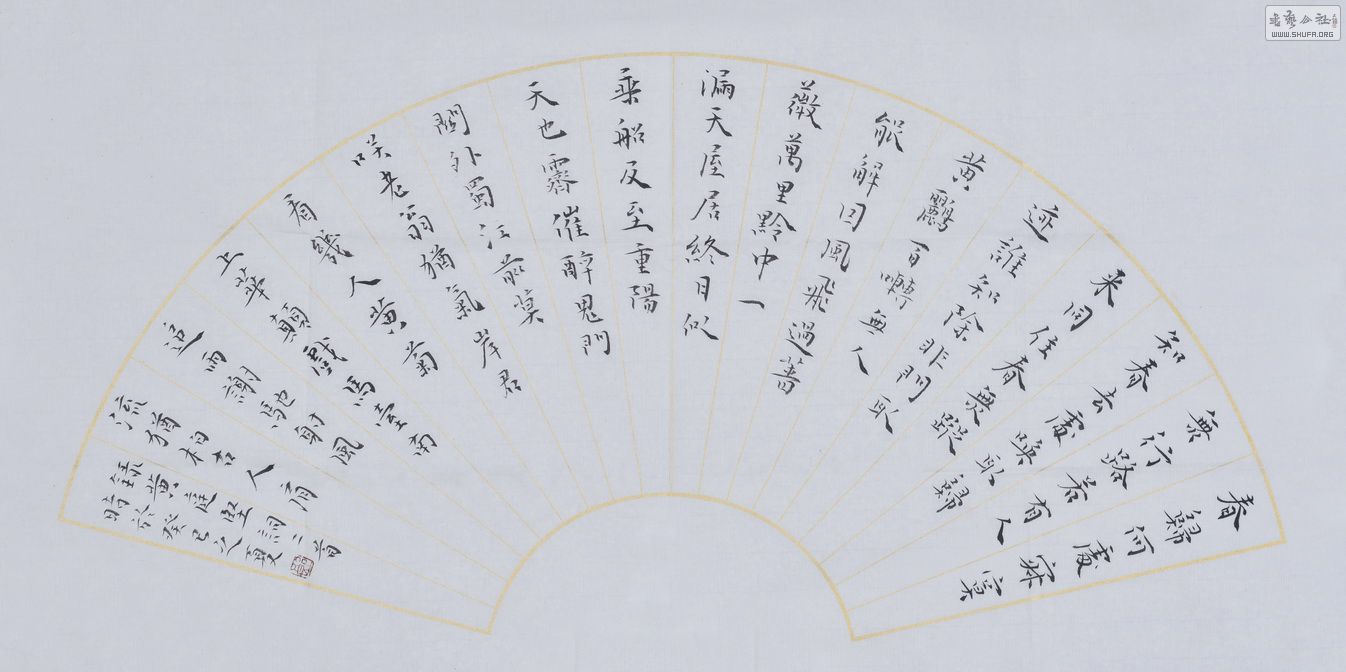 春歸何處寂寞
無行路若有人
知春去處喚取歸
来同住春無蹤
迹誰知除非問取
黄鸝百囀無人
能解因風飛過薔
薇萬里黔中一
漏天屋居終日似
乘船及至重陽
天也霽催醉鬼門
關外蜀江前莫
咲老翁猶氣岸君
看幾人黄菊
上華顛戲馬臺南
追兩謝馳射風
流猶拍古人肩
錄黄庭堅詞二首
時於癸巳之夏
書藝公社
WWW.SHUFA.ORG